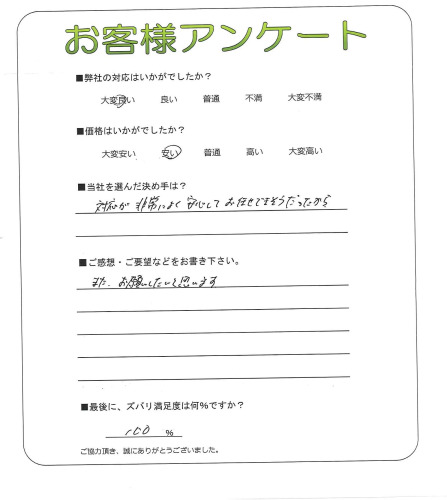 お客様アンケート
■弊社の対応はいかがでしたか？
大変良い 良い 普通 不満 大変不満
■価格はいかがでしたか？
大変安い 安い 普通 高い 大変高い
■当社を選んだ決め手は？
対応が非常によく安心してお任せできそうだったから
■ご感想・ご要望などをお書き下さい。
また、お願いしたいと思います
■最後に、ズバリ満足度は何％ですか？
100 ％
ご協力頂き、誠にありがとうございました。